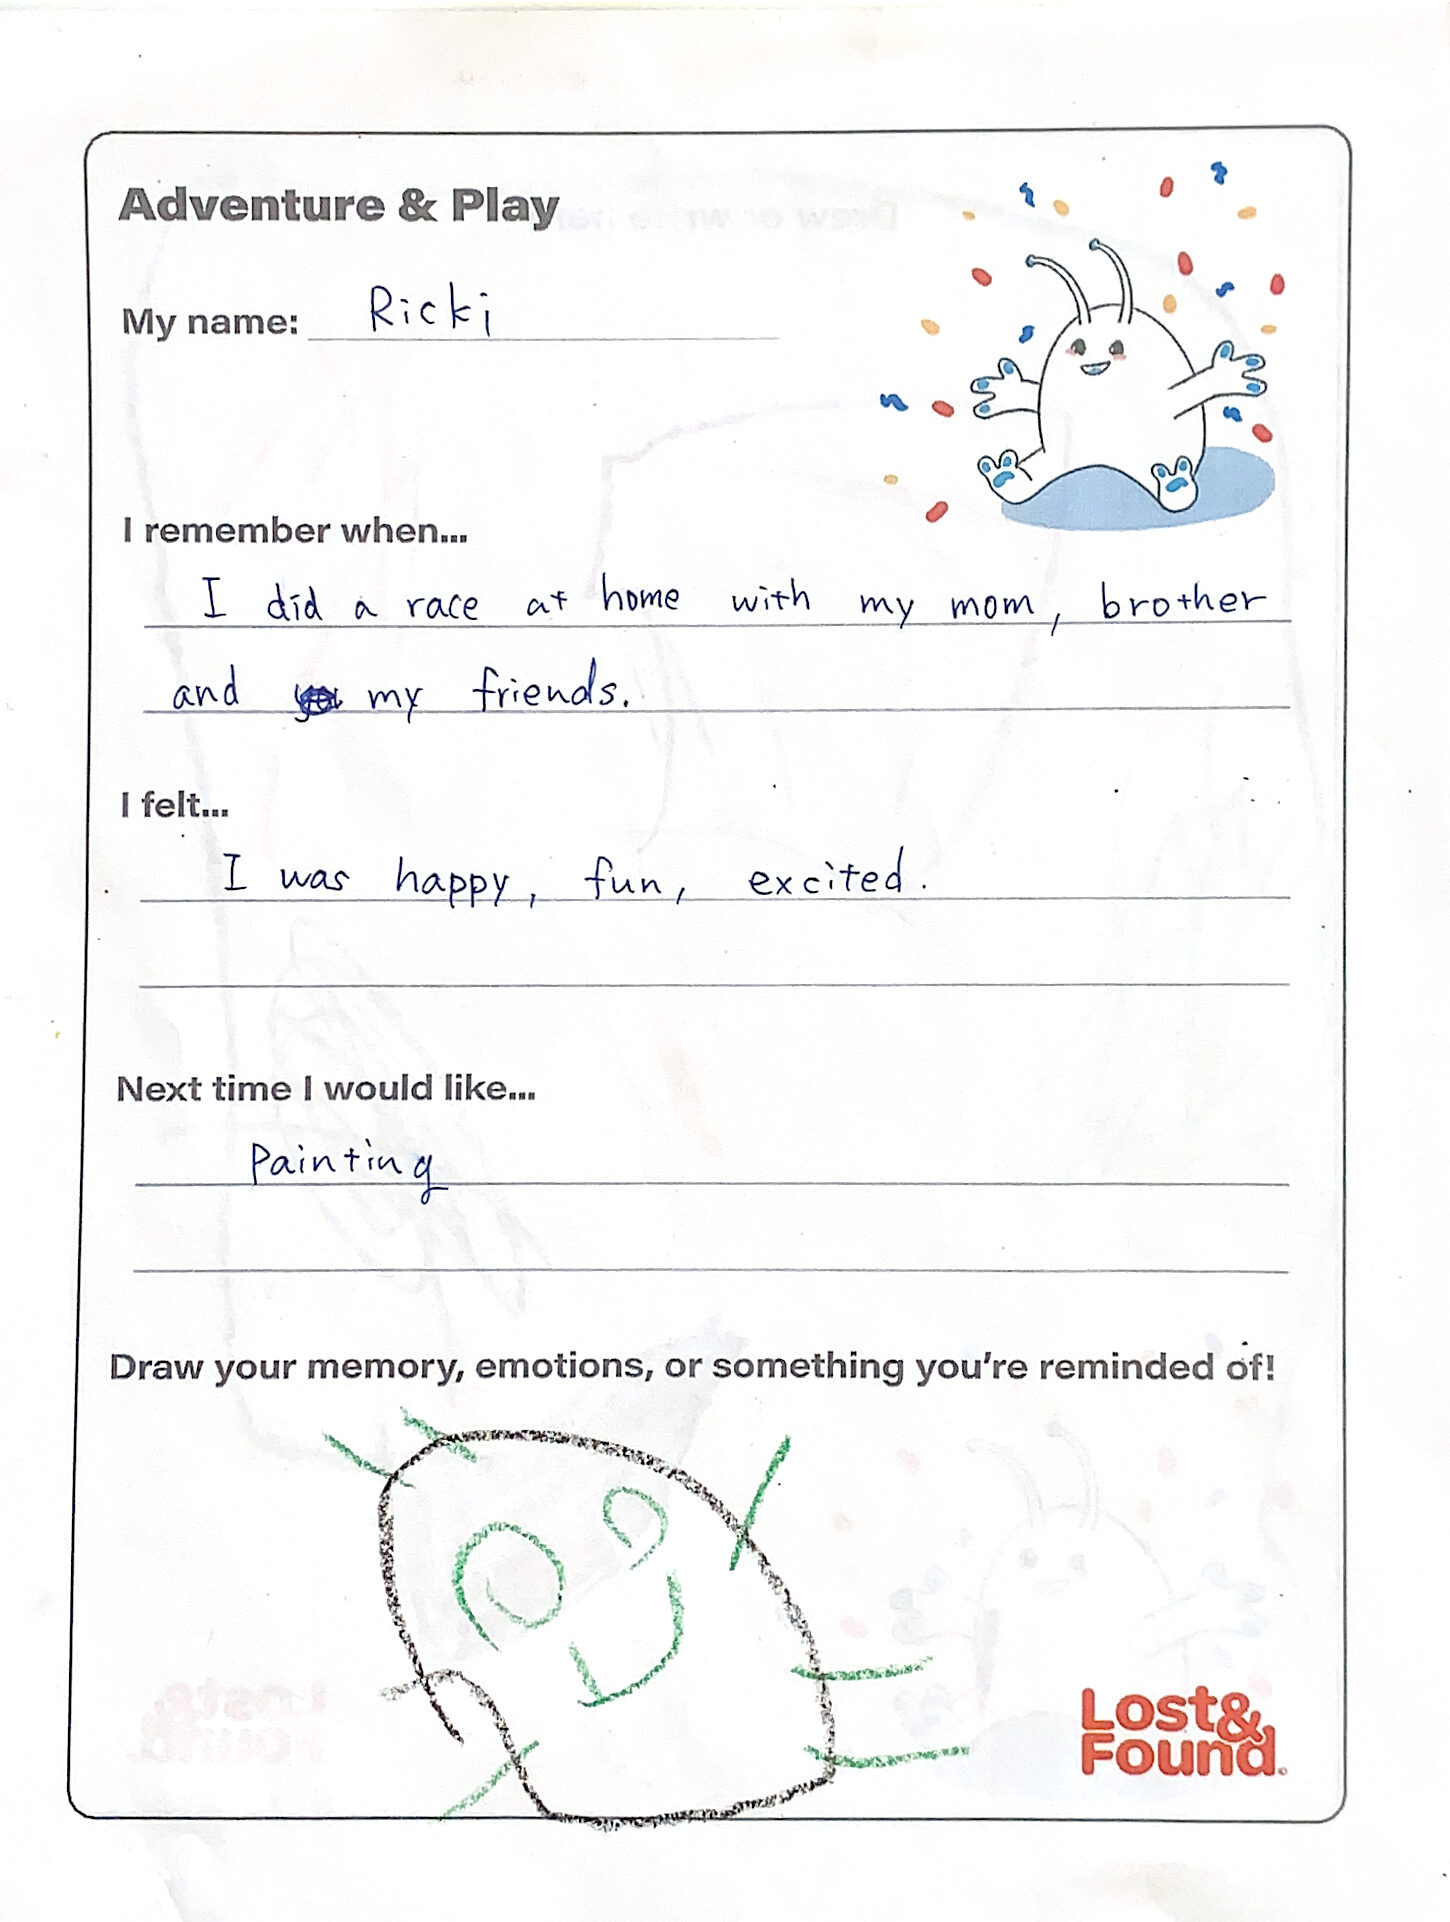 Adventure & Play
My name: Ricki
I remember when...
I did a race at home with my mom, brother
and my friends.
I felt...
I was happy, fun, excited.
Next time I would like...
Painting
Draw your memory, emotions, or something you're reminded of!
Lost&
Found.